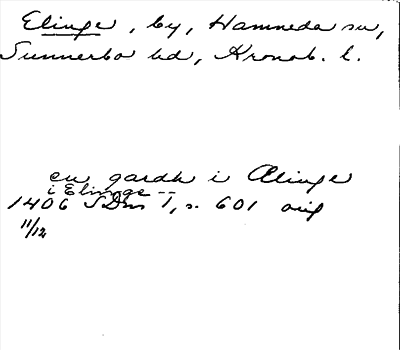 Elinge, by, Hamneda sn,
Sunnerbo hd, Kronob. l.
en gardh i Ælinge
i Elinge --
1406 SDns 1, s. 601 orig
11/12